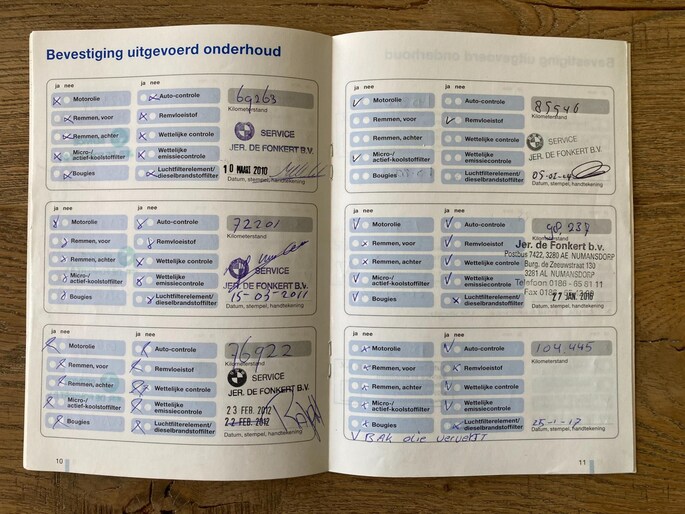 Bevestiging uitgevoerd onderhoud
ja nee
Motorolie
Auto-controle
Remmen, voor
Remvloeistof
Remmen, achter
Wettelijke controle
Micro-/
actief-koolstoffilter
Wettelijke
emissiecontrole
Bougies
Luchtfilterelement/
dieselbrandstoffilter
69263
Kilometerstand
SERVICE
JER. DE FONKERT B.V.
10 MAART 2010
Datum, stempel, handtekening
ja nee
ja nee
Motorolie
Auto-controle
Remmen, voor
Remvloeistof
Remmen, achter
Wettelijke controle
Micro-/
actief-koolstoffilter
Wettelijke
emissiecontrole
Bougies
Luchtfilterelement/
dieselbrandstoffilter
72201
Kilometerstand
SERVICE
JER. DE FONKERT B.V.
15-03-2011
Datum, stempel, handtekening
ja nee
ja nee
Motorolie
Auto-controle
Remmen, voor
Remvloeistof
Remmen, achter
Wettelijke controle
Micro-/
actief-koolstoffilter
Wettelijke
emissiecontrole
Bougies
Luchtfilterelement/
dieselbrandstoffilter
76922
Kilometerstand
SERVICE
JER. DE FONKERT B.V.
23 FEB. 2012
22 FEB. 2012
Datum, stempel, handtekening
10
ja nee
ja nee
Motorolie
Auto-controle
Remmen, voor
Remvloeistof
Remmen, achter
Wettelijke controle
Micro-/
actief-koolstoffilter
Wettelijke
emissiecontrole
Bougies
Luchtfilterelement/
dieselbrandstoffilter
85546
Kilometerstand
SERVICE
JER. DE FONKERT B.V.
Datum, stempel, handtekening
ja nee
ja nee
Motorolie
Auto-controle
Remmen, voor
Remvloeistof
Remmen, achter
Wettelijke controle
Micro-/
actief-koolstoffilter
Wettelijke
emissiecontrole
Bougies
Luchtfilterelement/
dieselbrandstoffilter
98.237
Kilometerstand
Jer. de Fonkert b.v.
Postbus 7422, 3280 AE NUMANSDORP
Burg. de Zeeuwstraat 130
3281 AL NUMANSDORP
Telefoon 0186 - 65 81 11
27 JAN. 2016
Datum, stempel, handtekening
ja nee
ja nee
Motorolie
Auto-controle
Remmen, voor
Remvloeistof
Remmen, achter
Wettelijke controle
Micro-/
actief-koolstoffilter
Wettelijke
emissiecontrole
Bougies
Luchtfilterelement/
dieselbrandstoffilter
104.445
Kilometerstand
25-1-17
Datum, stempel, handtekening
BAK olie ververst
11